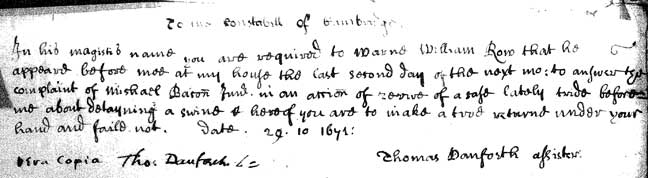 To the Constabill of Cambridge.
In his magistis name you are required to warne William Row that he
appeare before mee at my house the last second day of the next mo: to answer the
complaint of Michael Bacon Jund. in an action of revive of a case lately tride before
me about detayning a swine & hereof you are to make a true returne under your
hand and faile not. date. 29. 10 1671:
vera Copia Tho: Danforth
Thomas Danforth assister.